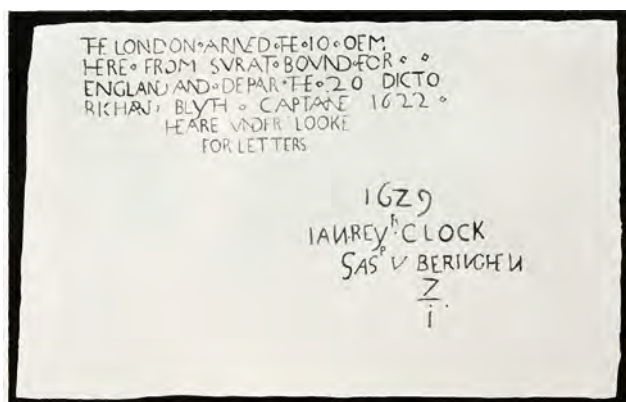 TE LONDON∘ARIVED∘TE∘10∘OF M
HERE∘ FROM SVRAT∘BOVND∘FOR∘ ∘
ENGLAND AND∘DEPAR∘TE∘20 DICTO
RICHARD BLYTH ∘ CAPTANE 1622 ∘
HEARE VNDER LOOKE
FOR LETTERS
1629
IAN.REYᴿ.CLOCK
SASᴾ V BERINGHEN
7
i